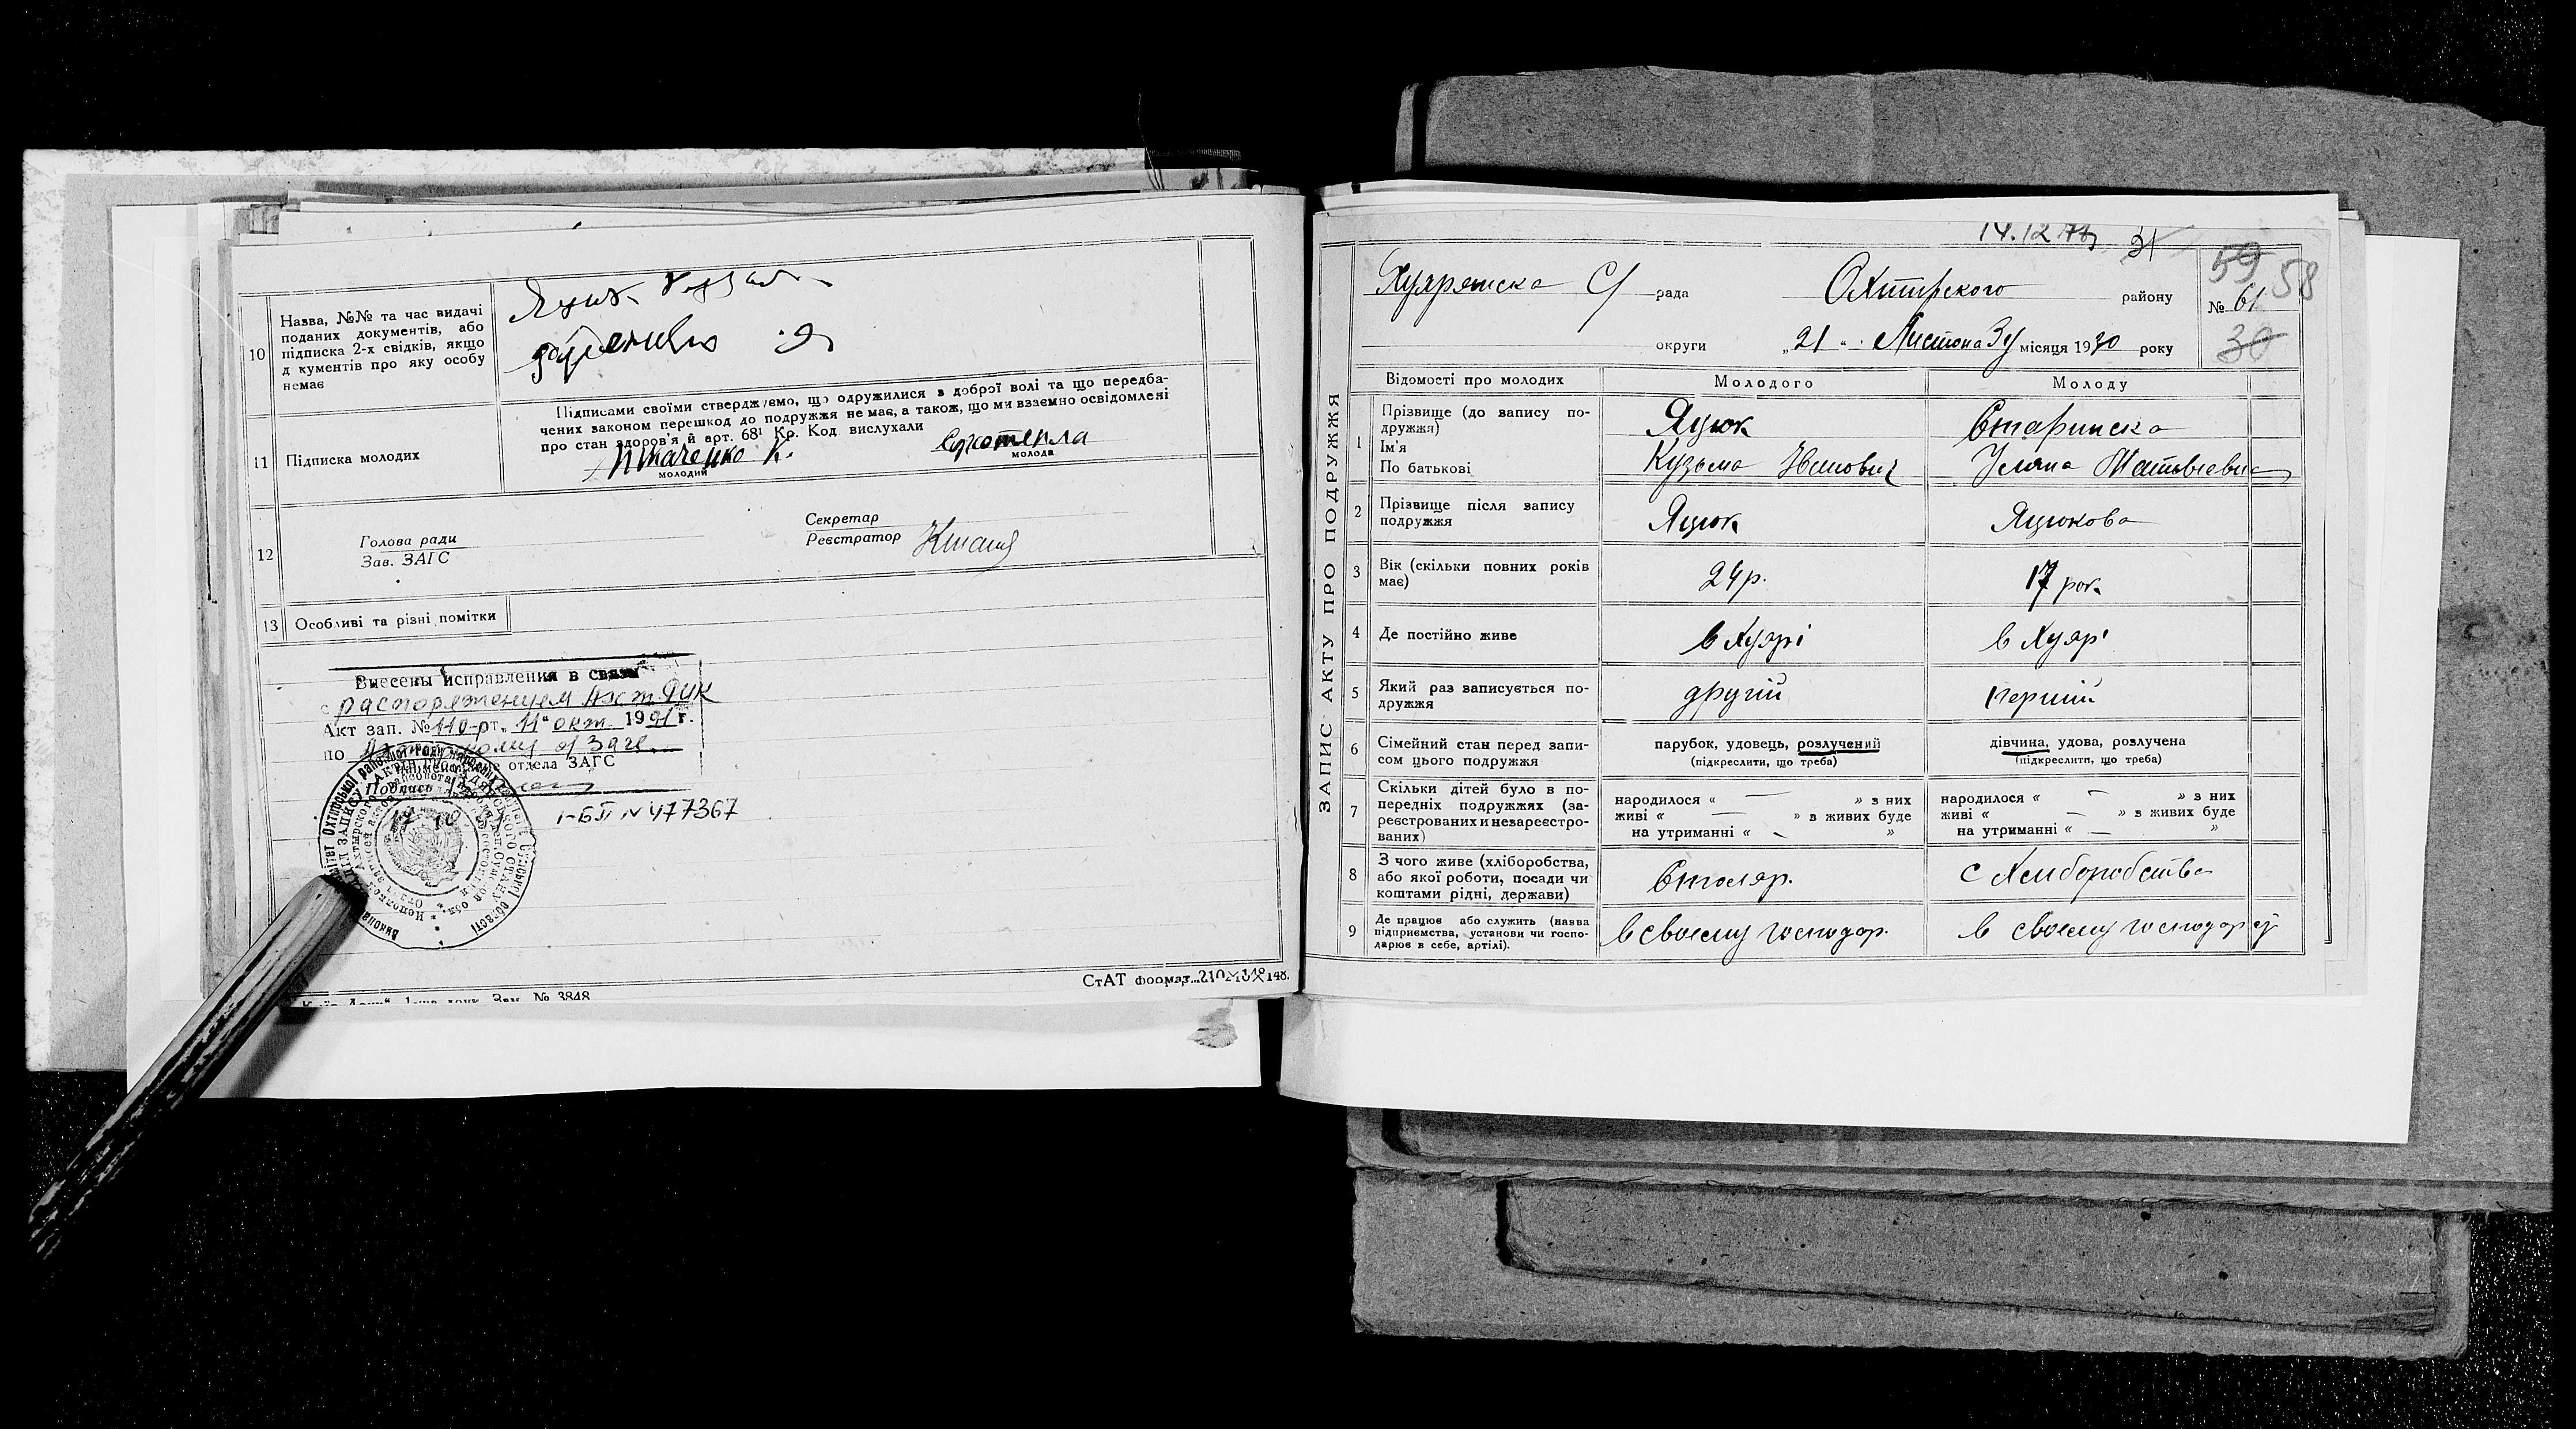 10
Назва, №№ та час видачі
поданих документів, або
підписка 2-х свідків, якщо
д кументів про яку особу
немає
Підписами своїми стверджуємо, що одружилися в доброї волі та що передба-
чених законом перешкод до подружжя не має, а також, що ми взаємно освідомлені
про стан здоров'я й арт. 68¹ Кр. Код вислухали
11
Підписка молодих
Ткаченко К.
молодий
молода
12
Голова ради
Зав. ЗАГС
Секретар
Реєстратор
13
Особливі та різні помітки
Внесены исправления в связи
с распоряжением
Акт зап. № 110 от „11" окт. 1991 г.
по
отдела ЗАГС
Подпись
I-БП № 477367
СтАТ формат 210
Зам. № 3848
14.12
31
59 58
рада
Охтирского
району
№ 61
30
округи
„21" Листопаду місяця 1930 року
ЗАПИС АКТУ ПРО ПОДРУЖЖЯ
Відомості про молодих
Молодого
Молоду
1
Прізвище (до запису по-
дружжя)
Ім'я
По батькові
Яцюк
Кузьма Иванович
Старинска
Уляна Матвіевна
2
Прізвище після запису
подружжя
Яцюк
Яцюкова
3
Вік (скільки повних років
має)
24 р.
17 рок.
4
Де постійно живе
в Хухрі
в Хухрі
5
Який раз записується по-
дружжя
другій
перший
6
Сімейний стан перед запи-
сом цього подружжя
парубок, удовець, розлучений
(підкреслити, що треба)
дівчина, удова, розлучена
(підкреслити, що треба)
7
Скільки дітей було в по-
передніх подружжях (за-
реєстрованих и незареєстро-
ваних)
народилося « — » з них
живі « — » в живих буде
на утриманні « — »
народилося « — » з них
живі « — » в живих буде
на утриманні « — »
8
З чого живе (хліборобства,
або якої роботи, посади чи
коштами рідні, держави)
Столяр.
с Хліборобства
9
Де працює або служить (назва
підприємства, установи чи госпо-
дарює в себе, артілі).
в своему господар.
в своему господарст